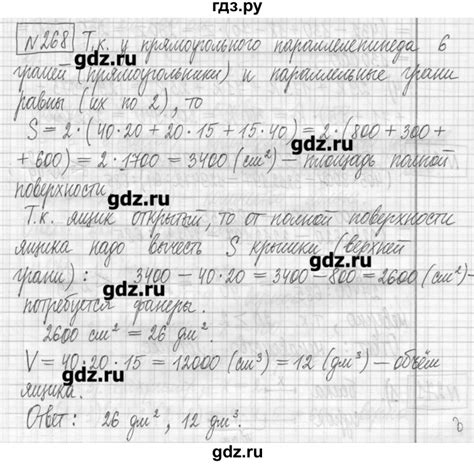 гдз.ру
№268 Т.к. у прямоугольного параллелепипеда 6
gdz.ru
граней (прямоугольники) и параллельные грани
равны (их по 2), то
gdz.ru
S = 2·(40·20 + 20·15 + 15·40) = 2·(800 + 300 +
+ 600) = 2·1700 = 3400 (см²) – площадь полной
поверхности
gdz.ru
gdz.ru
Т.к. ящик открытый, то от полной поверхности
ящика надо вычесть S крышки (верхней
gdz.ru
грани): 3400 – 40·20 = 3400 – 800 = 2600 (см²) –
gdz.ru
потребуется фанеры.
2600 см² = 26 дм².
gdz.ru
V = 40·20·15 = 12000 (см³) = 12 (дм³) – объём
gdz.ru
ящика.
Ответ: 26 дм², 12 дм³.
gdz.ru